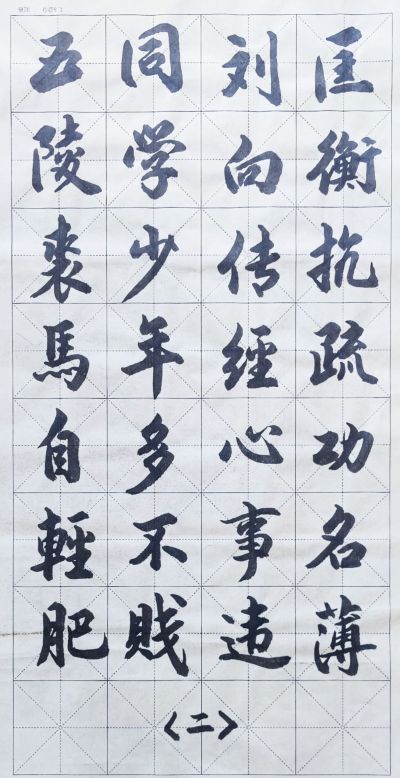 匡衡抗疏功名薄
刘向传經心事违
同学少年多不贱
五陵裘馬自輕肥
<二>